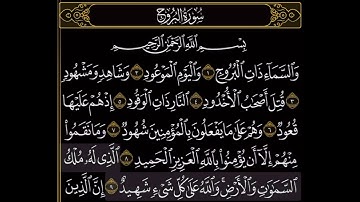 سُورَةُ البُرُوجِ
بِسْمِ ٱللَّهِ ٱلرَّحْمَٰنِ ٱلرَّحِيمِ
وَٱلسَّمَآءِ ذَاتِ ٱلْبُرُوجِ ١ وَٱلْيَوْمِ ٱلْمَوْعُودِ ٢ وَشَاهِدٍ وَمَشْهُودٍ
٣ قُتِلَ أَصْحَٰبُ ٱلْأُخْدُودِ ٤ ٱلنَّارِ ذَاتِ ٱلْوَقُودِ ٥ إِذْ هُمْ عَلَيْهَا
قُعُودٌ ٦ وَهُمْ عَلَىٰ مَا يَفْعَلُونَ بِٱلْمُؤْمِنِينَ شُهُودٌ ٧ وَمَا نَقَمُوا۟
مِنْهُمْ إِلَّآ أَن يُؤْمِنُوا۟ بِٱللَّهِ ٱلْعَزِيزِ ٱلْحَمِيدِ ٨ ٱلَّذِى لَهُۥ مُلْكُ
ٱلسَّمَٰوَٰتِ وَٱلْأَرْضِ وَٱللَّهُ عَلَىٰ كُلِّ شَىْءٍ شَهِيدٌ ٩ إِنَّ ٱلَّذِينَ